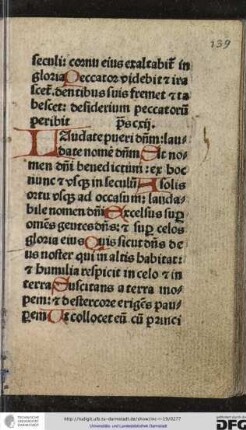 139
seculi: cornu eius exaltabit̃ in
gloria Peccator videbit & ira
scet̃. dentibus suis fremet & ta
bescet: desiderium peccatorũ
peribit ps cxij.
LAudate pueri dñm: lau-
date nomẽ dñm Sit no-
men dñi benedictum: ex hoc
nunc & vsqꝫ in seculũ A solis
ortu vsqꝫ ad occasum: lauda-
bile nomen dñi Excelsus suꝑ
omẽs gentes dñs: & suꝑ celos
gloria eius Quis sicut dñs de
us noster qui in altis habitat:
& humilia respicit in celo & in
terra Suscitans a terra ino-
pem: & de stercore erigẽs pau-
perem Ut collocet eũ cũ princi
http://tudigit.ulb.tu-darmstadt.de/show/inc-
Universitäts- und Landesbibliothek Darmstadt
DFG